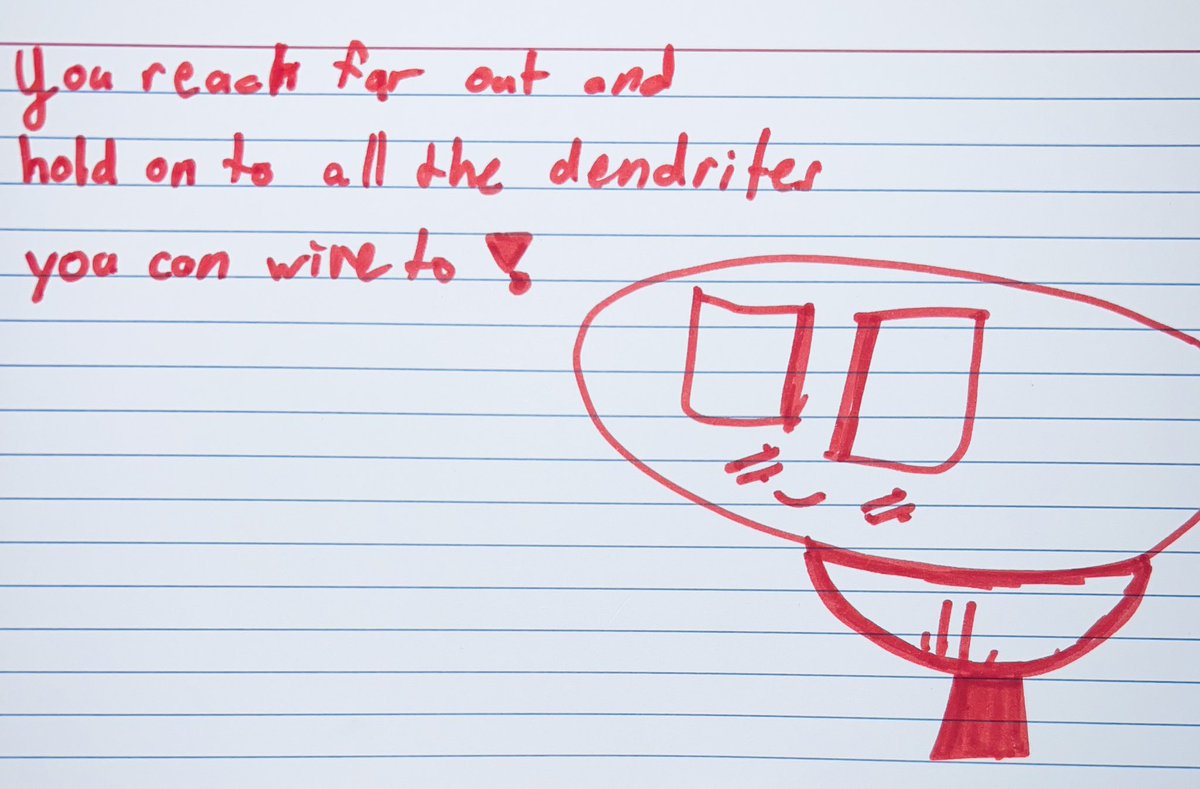 You reach far out and
hold on to all the dendrites
you can wire to!